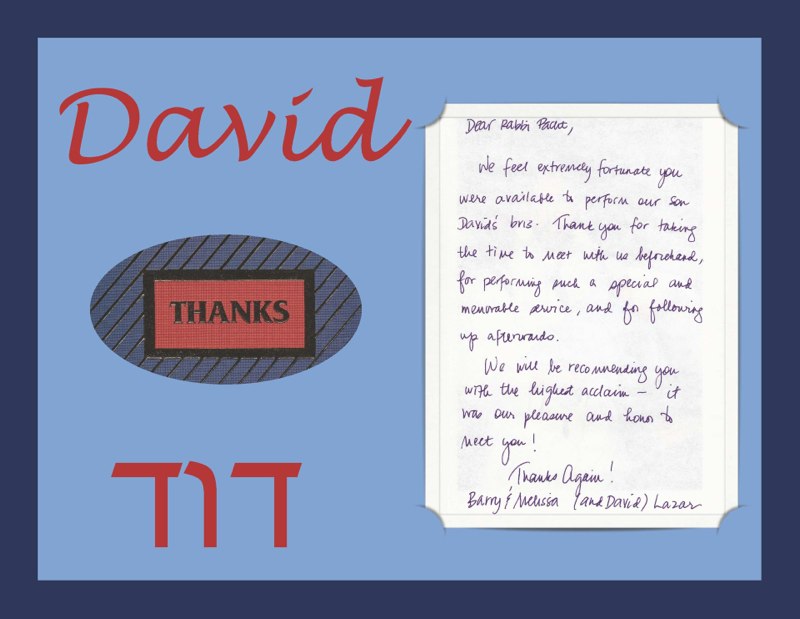 David
THANKS
דוד
Dear Rabbi Pacht,
We feel extremely fortunate you
were available to perform our son
David's bris. Thank you for taking
the time to meet with us beforehand,
for performing such a special and
memorable service, and for following
up afterwards.
We will be recommending you
with the highest acclaim – it
was our pleasure and honor to
meet you!
Thanks Again!
Barry & Melissa (and David) Lazar